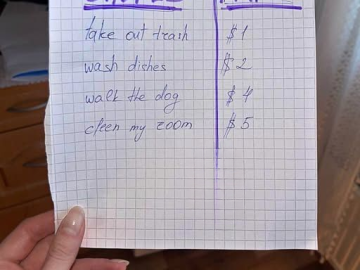 take out trash $1
wash dishes $2
walk the dog $4
cleen my room $5